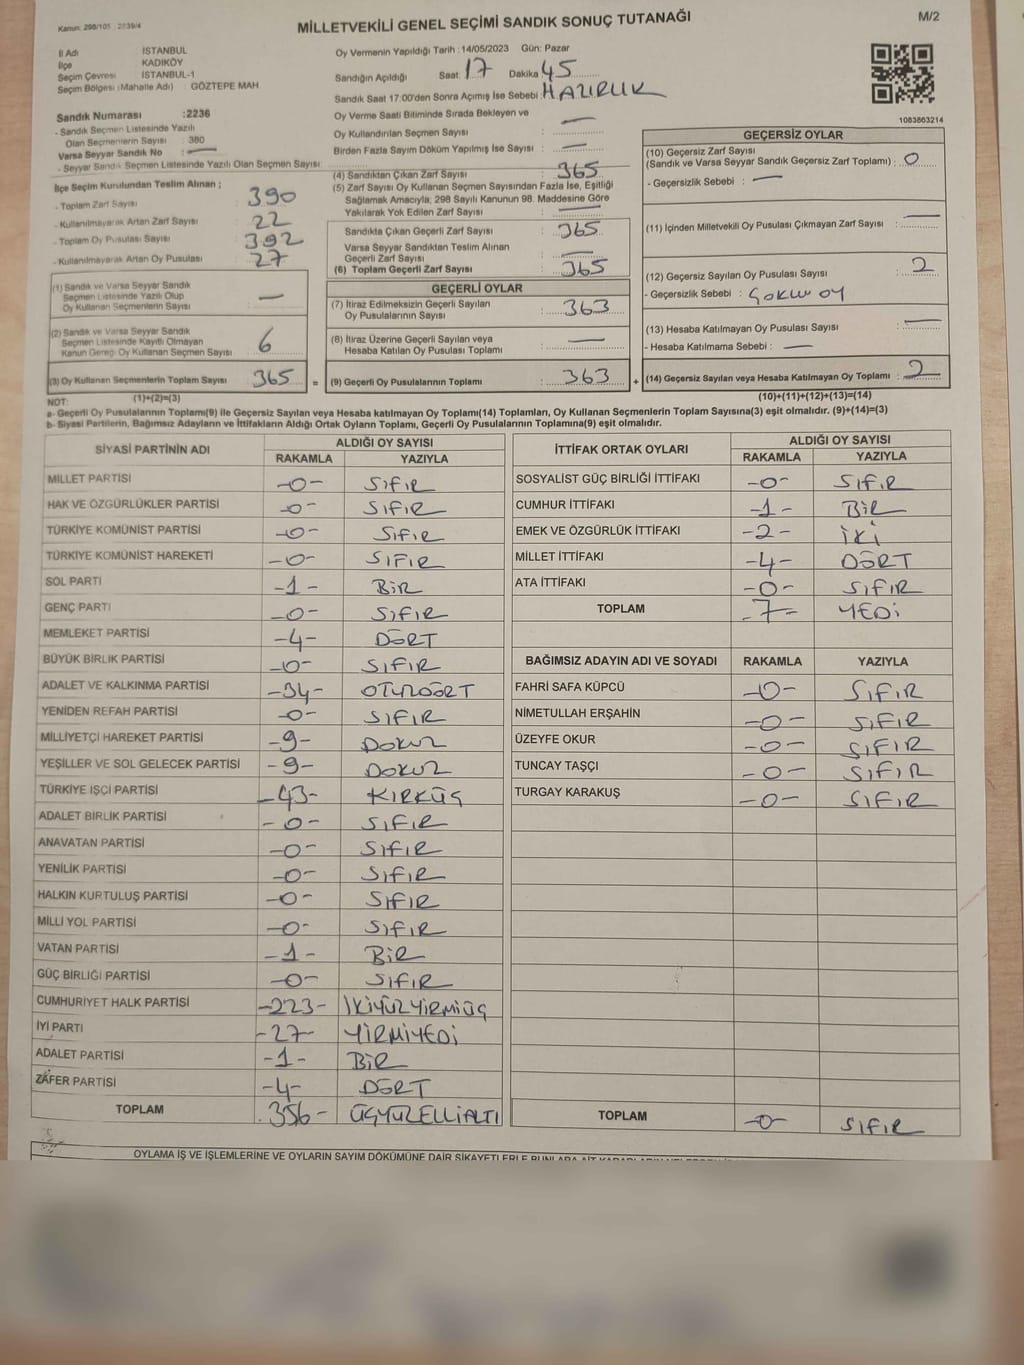 MİLLETVEKİLİ GENEL SEÇİMİ SANDIK SONUÇ TUTANAĞI
M/2
İl Adı İSTANBUL
İlçe KADIKÖY
Seçim Çevresi İSTANBUL-1
Seçim Bölgesi (Mahalle Adı) : GÖZTEPE MAH
Oy Vermenin Yapıldığı Tarih : 14/05/2023 Gün: Pazar
Sandığın Açıldığı Saat: 17 Dakika 45
Sandık Saat 17:00'den Sonra Açımış İse Sebebi : HAZIRLIK
1083863214
Sandık Numarası :2236
- Sandık Seçmen Listesinde Yazılı
Olan Seçmenlerin Sayısı : 380
Varsa Seyyar Sandık No : —
- Seyyar Sandık Seçmen Listesinde Yazılı Olan Seçmen Sayısı
Oy Verme Saati Bitiminde Sırada Bekleyen ve
Oy Kullandırılan Seçmen Sayısı : —
Birden Fazla Sayım Döküm Yapılmış İse Sayısı : —
İlçe Seçim Kurulundan Teslim Alınan ;
- Toplam Zarf Sayısı : 390
- Kullanılmayarak Artan Zarf Sayısı : 22
- Toplam Oy Pusulası Sayısı : 392
- Kullanılmayarak Artan Oy Pusulası : 27
(1) Sandık ve Varsa Seyyar Sandık
Seçmen Listesinde Yazılı Olup
Oy Kullanan Seçmenlerin Sayısı : —
(2) Sandık ve Varsa Seyyar Sandık
Seçmen Listesinde Kayıtlı Olmayan
Kanun Gereği Oy Kullanan Seçmen Sayısı : 6
(3) Oy Kullanan Seçmenlerin Toplam Sayısı : 365 =
(1)+(2)=(3)
(4) Sandıktan Çıkan Zarf Sayısı : 365
(5) Zarf Sayısı Oy Kullanan Seçmen Sayısından Fazla İse, Eşitliği
Sağlamak Amacıyla; 298 Sayılı Kanunun 98. Maddesine Göre
Yakılarak Yok Edilen Zarf Sayısı : —
Sandıkta Çıkan Geçerli Zarf Sayısı : 365
Varsa Seyyar Sandıktan Teslim Alınan
Geçerli Zarf Sayısı : —
(6) Toplam Geçerli Zarf Sayısı : 365
GEÇERLİ OYLAR
(7) İtiraz Edilmeksizin Geçerli Sayılan
Oy Pusulalarının Sayısı : 363
(8) İtiraz Üzerine Geçerli Sayılan veya
Hesaba Katılan Oy Pusulası Toplamı : —
(9) Geçerli Oy Pusulalarının Toplamı : 363 +
GEÇERSİZ OYLAR
(10) Geçersiz Zarf Sayısı
(Sandık ve Varsa Seyyar Sandık Geçersiz Zarf Toplamı) : 0
- Geçersizlik Sebebi : —
(11) İçinden Milletvekili Oy Pusulası Çıkmayan Zarf Sayısı : —
(12) Geçersiz Sayılan Oy Pusulası Sayısı : 2
- Geçersizlik Sebebi : ÇOKLU OY
(13) Hesaba Katılmayan Oy Pusulası Sayısı : —
- Hesaba Katılmama Sebebi : —
(14) Geçersiz Sayılan veya Hesaba Katılmayan Oy Toplamı : 2
(10)+(11)+(12)+(13)=(14)
NOT:
a- Geçerli Oy Pusulalarının Toplamı(9) ile Geçersiz Sayılan veya Hesaba katılmayan Oy Toplamı(14) Toplamları, Oy Kullanan Seçmenlerin Toplam Sayısına(3) eşit olmalıdır. (9)+(14)=(3)
b- Siyasi Partilerin, Bağımsız Adayların ve İttifakların Aldığı Ortak Oyların Toplamı, Geçerli Oy Pusulalarının Toplamına(9) eşit olmalıdır.
SİYASİ PARTİNİN ADI ALDIĞI OY SAYISI
RAKAMLA YAZIYLA
MİLLET PARTİSİ -0- SIFIR
HAK VE ÖZGÜRLÜKLER PARTİSİ -0- SIFIR
TÜRKİYE KOMÜNİST PARTİSİ -0- SIFIR
TÜRKİYE KOMÜNİST HAREKETİ -0- SIFIR
SOL PARTİ -1- BİR
GENÇ PARTİ -0- SIFIR
MEMLEKET PARTİSİ -4- DÖRT
BÜYÜK BİRLİK PARTİSİ -0- SIFIR
ADALET VE KALKINMA PARTİSİ -34- OTUZDÖRT
YENİDEN REFAH PARTİSİ -0- SIFIR
MİLLİYETÇİ HAREKET PARTİSİ -9- DOKUZ
YEŞİLLER VE SOL GELECEK PARTİSİ -9- DOKUZ
TÜRKİYE İŞÇİ PARTİSİ -43- KIRKÜÇ
ADALET BİRLİK PARTİSİ -0- SIFIR
ANAVATAN PARTİSİ -0- SIFIR
YENİLİK PARTİSİ -0- SIFIR
HALKIN KURTULUŞ PARTİSİ -0- SIFIR
MİLLİ YOL PARTİSİ -0- SIFIR
VATAN PARTİSİ -1- BİR
GÜÇ BİRLİĞİ PARTİSİ -0- SIFIR
CUMHURİYET HALK PARTİSİ -223- İKİYÜZYİRMİÜÇ
İYİ PARTİ -27- YİRMİYEDİ
ADALET PARTİSİ -1- BİR
ZAFER PARTİSİ -4- DÖRT
TOPLAM 356- ÜÇYÜZELLİALTI
İTTİFAK ORTAK OYLARI ALDIĞI OY SAYISI
RAKAMLA YAZIYLA
SOSYALİST GÜÇ BİRLİĞİ İTTİFAKI -0- SIFIR
CUMHUR İTTİFAKI -1- BİR
EMEK VE ÖZGÜRLÜK İTTİFAKI -2- İKİ
MİLLET İTTİFAKI -4- DÖRT
ATA İTTİFAKI -0- SIFIR
TOPLAM -7- YEDİ
BAĞIMSIZ ADAYIN ADI VE SOYADI RAKAMLA YAZIYLA
FAHRİ SAFA KÜPCÜ -0- SIFIR
NİMETULLAH ERŞAHİN -0- SIFIR
ÜZEYFE OKUR -0- SIFIR
TUNCAY TAŞÇI -0- SIFIR
TURGAY KARAKUŞ -0- SIFIR
TOPLAM -0- SIFIR
OYLAMA İŞ VE İŞLEMLERİNE VE OYLARIN SAYIM DÖKÜMÜNE DAİR ŞİKAYETLERLE BUNLARA AİT